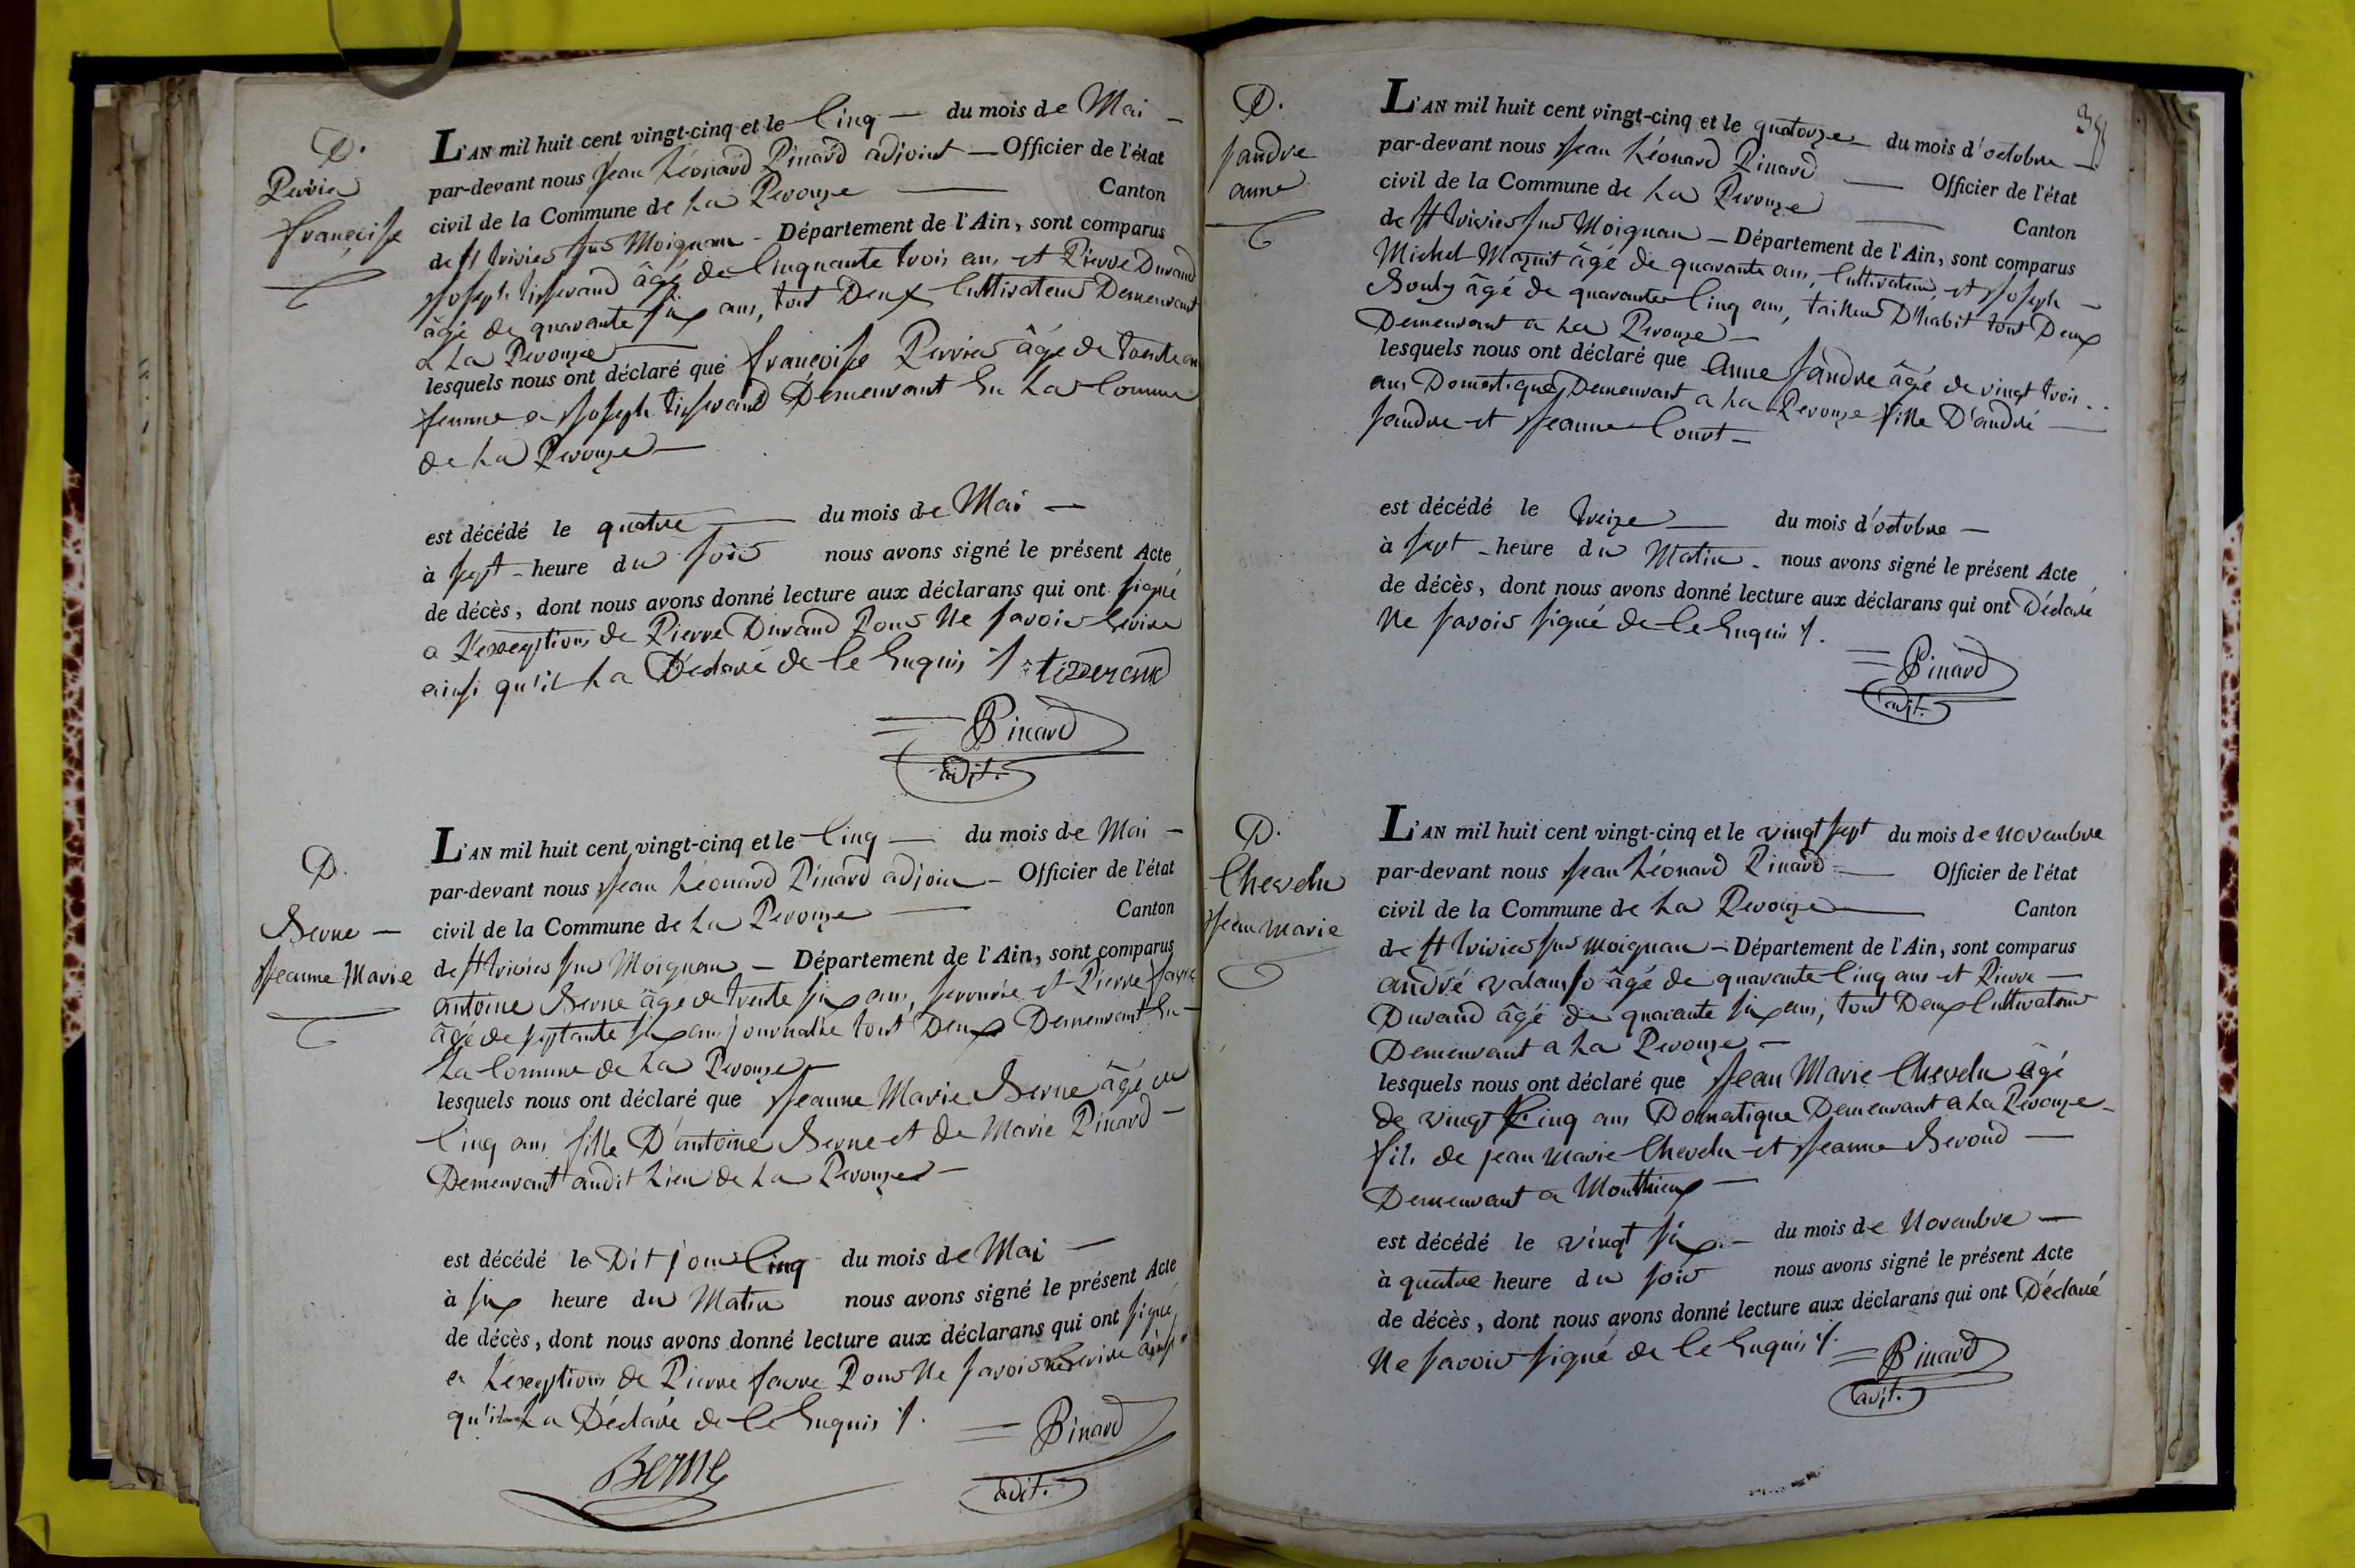 D.
Perrier
françoise
L'AN mil huit cent vingt-cinq et le Cinq — du mois de Mai —
par-devant nous Jean Léonard Pinard adjoint — Officier de l'état
civil de la Commune de La Perouze — Canton
de St trivier sur Moignan - Département de l'Ain, sont comparus
Joseph tisserand âgé de Cinquante trois ans et Pierre Durand
âgé de quarante six ans, tout Deux Cultivateur Demeurant
a La Perouze —
lesquels nous ont déclaré que françoise Perrier âgé de trente an
femme a Joseph tisserand Demeurant En La Comune
de La Perouze —
est décédé le quatre — du mois de Mai —
à sept - heure du soir nous avons signé le présent Acte
de décès, dont nous avons donné lecture aux déclarans qui ont signé
a L'exseption de Pierre Durand Pour Ne savoir Ecrire
ainsi qu'il La Déclaré de Ce Enquis ./. tizzerand
= Pinard
adjt.
D.
Berne —
Jeanne Marie
L'AN mil huit cent vingt-cinq et le Cinq — du mois de Mai —
par-devant nous Jean Léonard Pinard adjoin - Officier de l'état
civil de la Commune de La Perouze — Canton
de St trivier sur Moignan — Département de l'Ain, sont comparus
antoine Berne âgé de trente six ans, et Pierre favre
âgé de septante six ans journalié tout Deux Demeurant En -
La Comune de La Perouze —
lesquels nous ont déclaré que Jeanne Marie Berne âgé de
Cinq ans fille D'antoine Berne et de Marie Pinard —
Demeurant audit Lieu de La Perouze —
est décédé le Dit jour Cinq du mois de Mai —
à six heure du Matin nous avons signé le présent Acte
de décès, dont nous avons donné lecture aux déclarans qui ont signé,
a L'exseption de Pierre favre Pour Ne savoir Ecrire ainsi
qu'il La Déclaré de Ce Enquis ./. = Pinard
Berne adjt.
D.
Sandre
anne
L'AN mil huit cent vingt-cinq et le quatorze — du mois d'octobre —
par-devant nous Jean Léonard Pinard — Officier de l'état
civil de la Commune de La Perouze — Canton
de St trivier sur Moignan — Département de l'Ain, sont comparus
Michel âgé de quarante ans, Cultivateur, et Joseph —
Bouly âgé de quarante Cinq ans, tailleur D'habit tout Deux
Demeurant a La Perouze —
lesquels nous ont déclaré que Anne Sandre âgé de vingt trois ..
ans Domestique, Demeurant a La Perouze fille D'andré —
Sandre et Jeanne Court —
est décédé le treize — du mois d'octobre —
à sept - heure du Matin - nous avons signé le présent Acte
de décès, dont nous avons donné lecture aux déclarans qui ont Déclaré
Ne savoir signé de Ce Enquis ./.
= Pinard
adjt.
D.
Chevelu
Jean Marie
L'AN mil huit cent vingt-cinq et le vingt sept du mois de novembre
par-devant nous Jean Léonard Pinard — Officier de l'état
civil de la Commune de La Perouze — Canton
de St trivier sur moignan — Département de l'Ain, sont comparus
andré valanso âgé de quarante Cinq ans et Pierre —
Durand âgé de quarante six ans, tout Deux Cultivateur
Demeurant a La Perouze —
lesquels nous ont déclaré que Jean Marie Chevelu âgé
de vingt Cinq ans Domatique Demeurant a La Perouze -
fils de jean marie Chevelu et Jeanne Beroud —
Demeurant a Monthieux —
est décédé le vingt six — du mois de Novembre —
à quatre heure du soir nous avons signé le présent Acte
de décès, dont nous avons donné lecture aux déclarans qui ont Déclaré
Ne savoir signé de Ce Enquis ./. = Pinard
adjt.